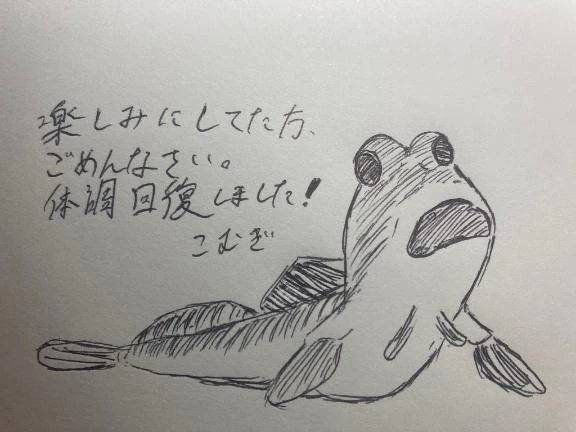 楽しみにしてた方、
ごめんなさい。
体調回復しました!
こむぎ